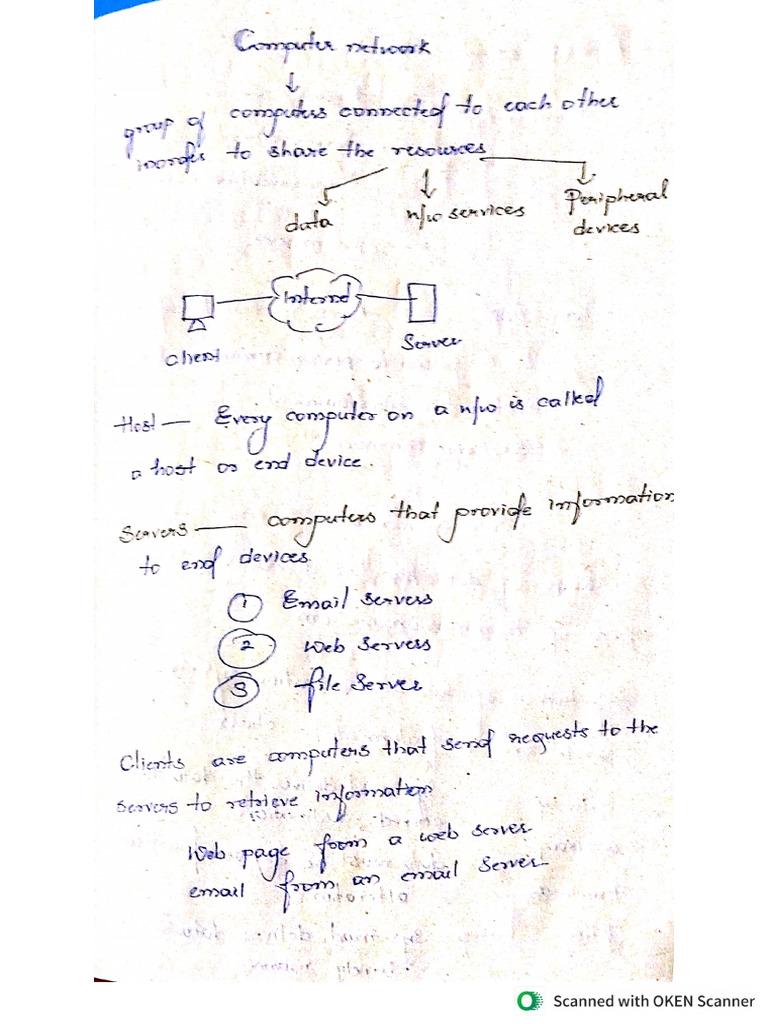 Computer network
group of computers connected to each other
inorder to share the resources
data
n/w services
Peripheral
devices
Internet
client
Server
Host — Every computer on a n/w is called
a host or end device.
Servers — computers that provide information
to end devices.
1 Email servers
2 Web servers
3 file server
Clients are computers that send requests to the
servers to retrieve information
Web page from a web server
email from an email server
Scanned with OKEN Scanner